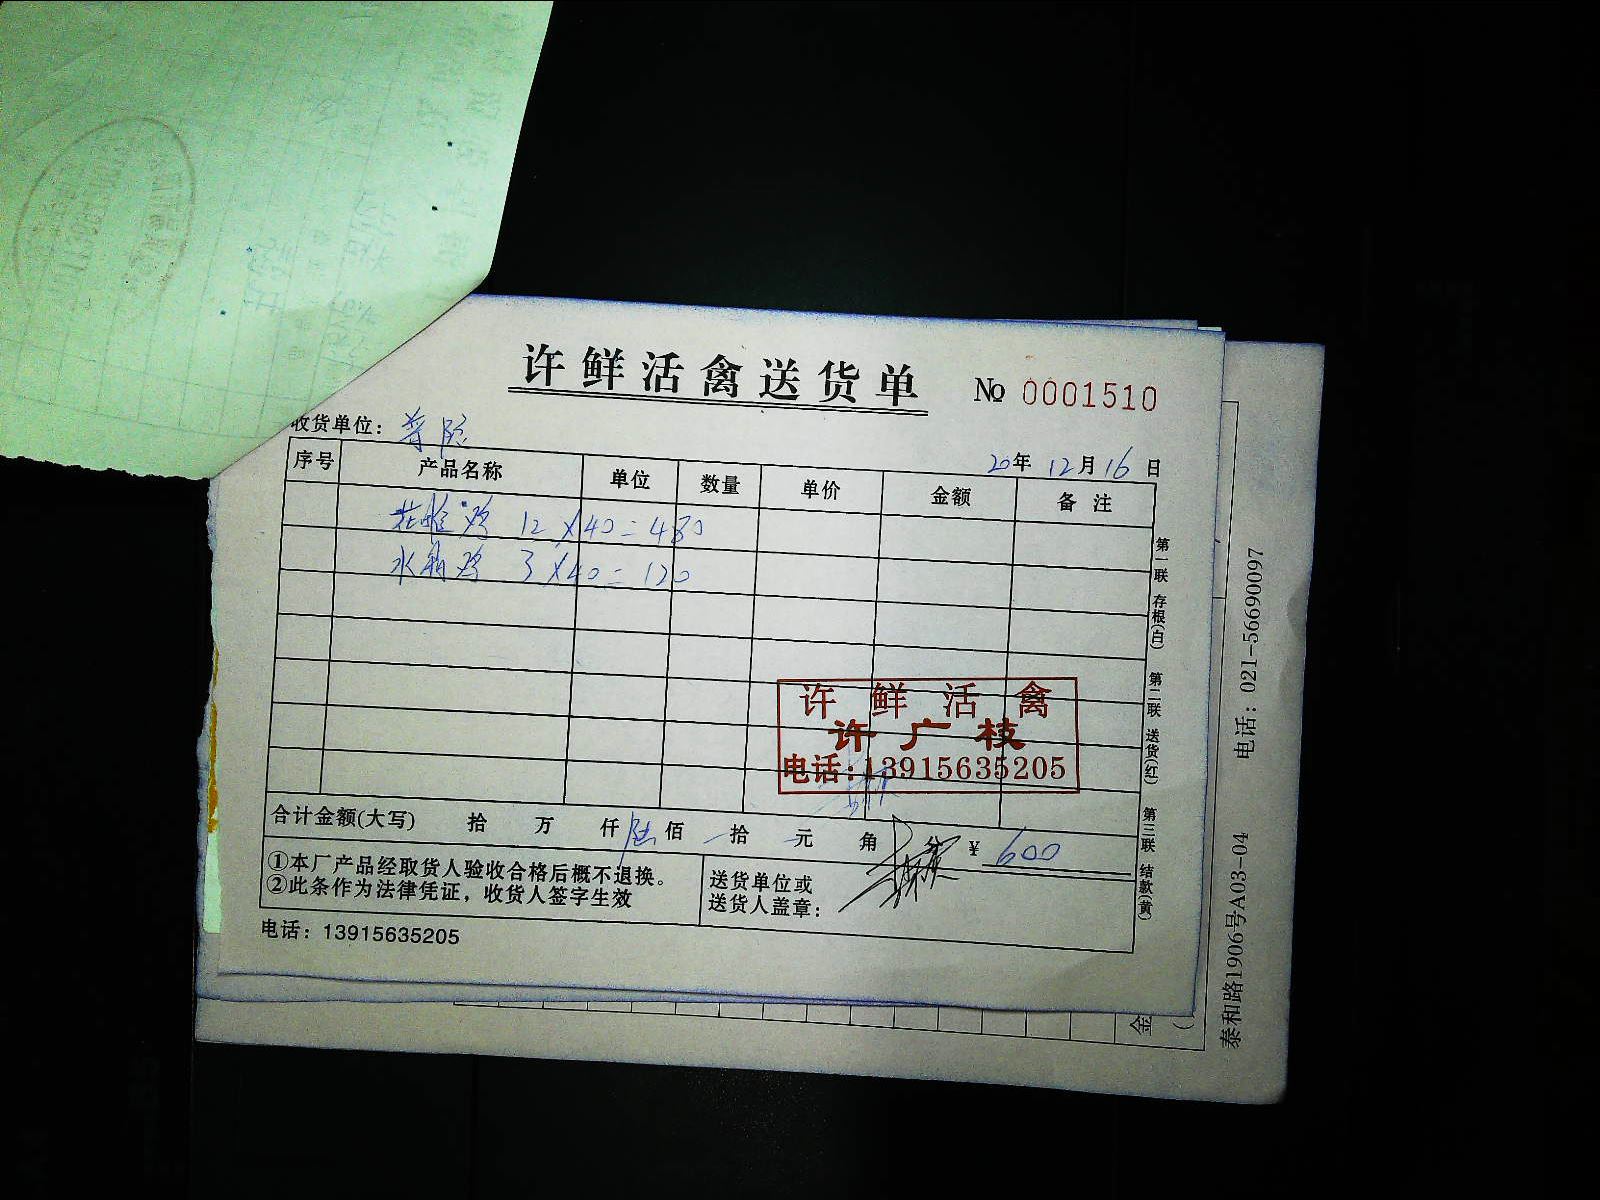 许鲜活禽送货单
No 0001510
收货单位：普陀
20年 12月16日
序号 产品名称 单位 数量 单价 金额 备注
鸡 12×40=480
水鸡 3×40=120
许鲜活禽
许广枝
电话:13915635205
合计金额(大写) 拾 万 仟 陆佰 拾 元 角 分 ¥ 600
①本厂产品经取货人验收合格后概不退换。
②此条作为法律凭证，收货人签字生效
送货单位或
送货人盖章：
电话：13915635205
第一联 存根(白) 第二联 送货(红) 第三联 结款(黄)
泰和路1906号A03-04 电话：021-56690097
金